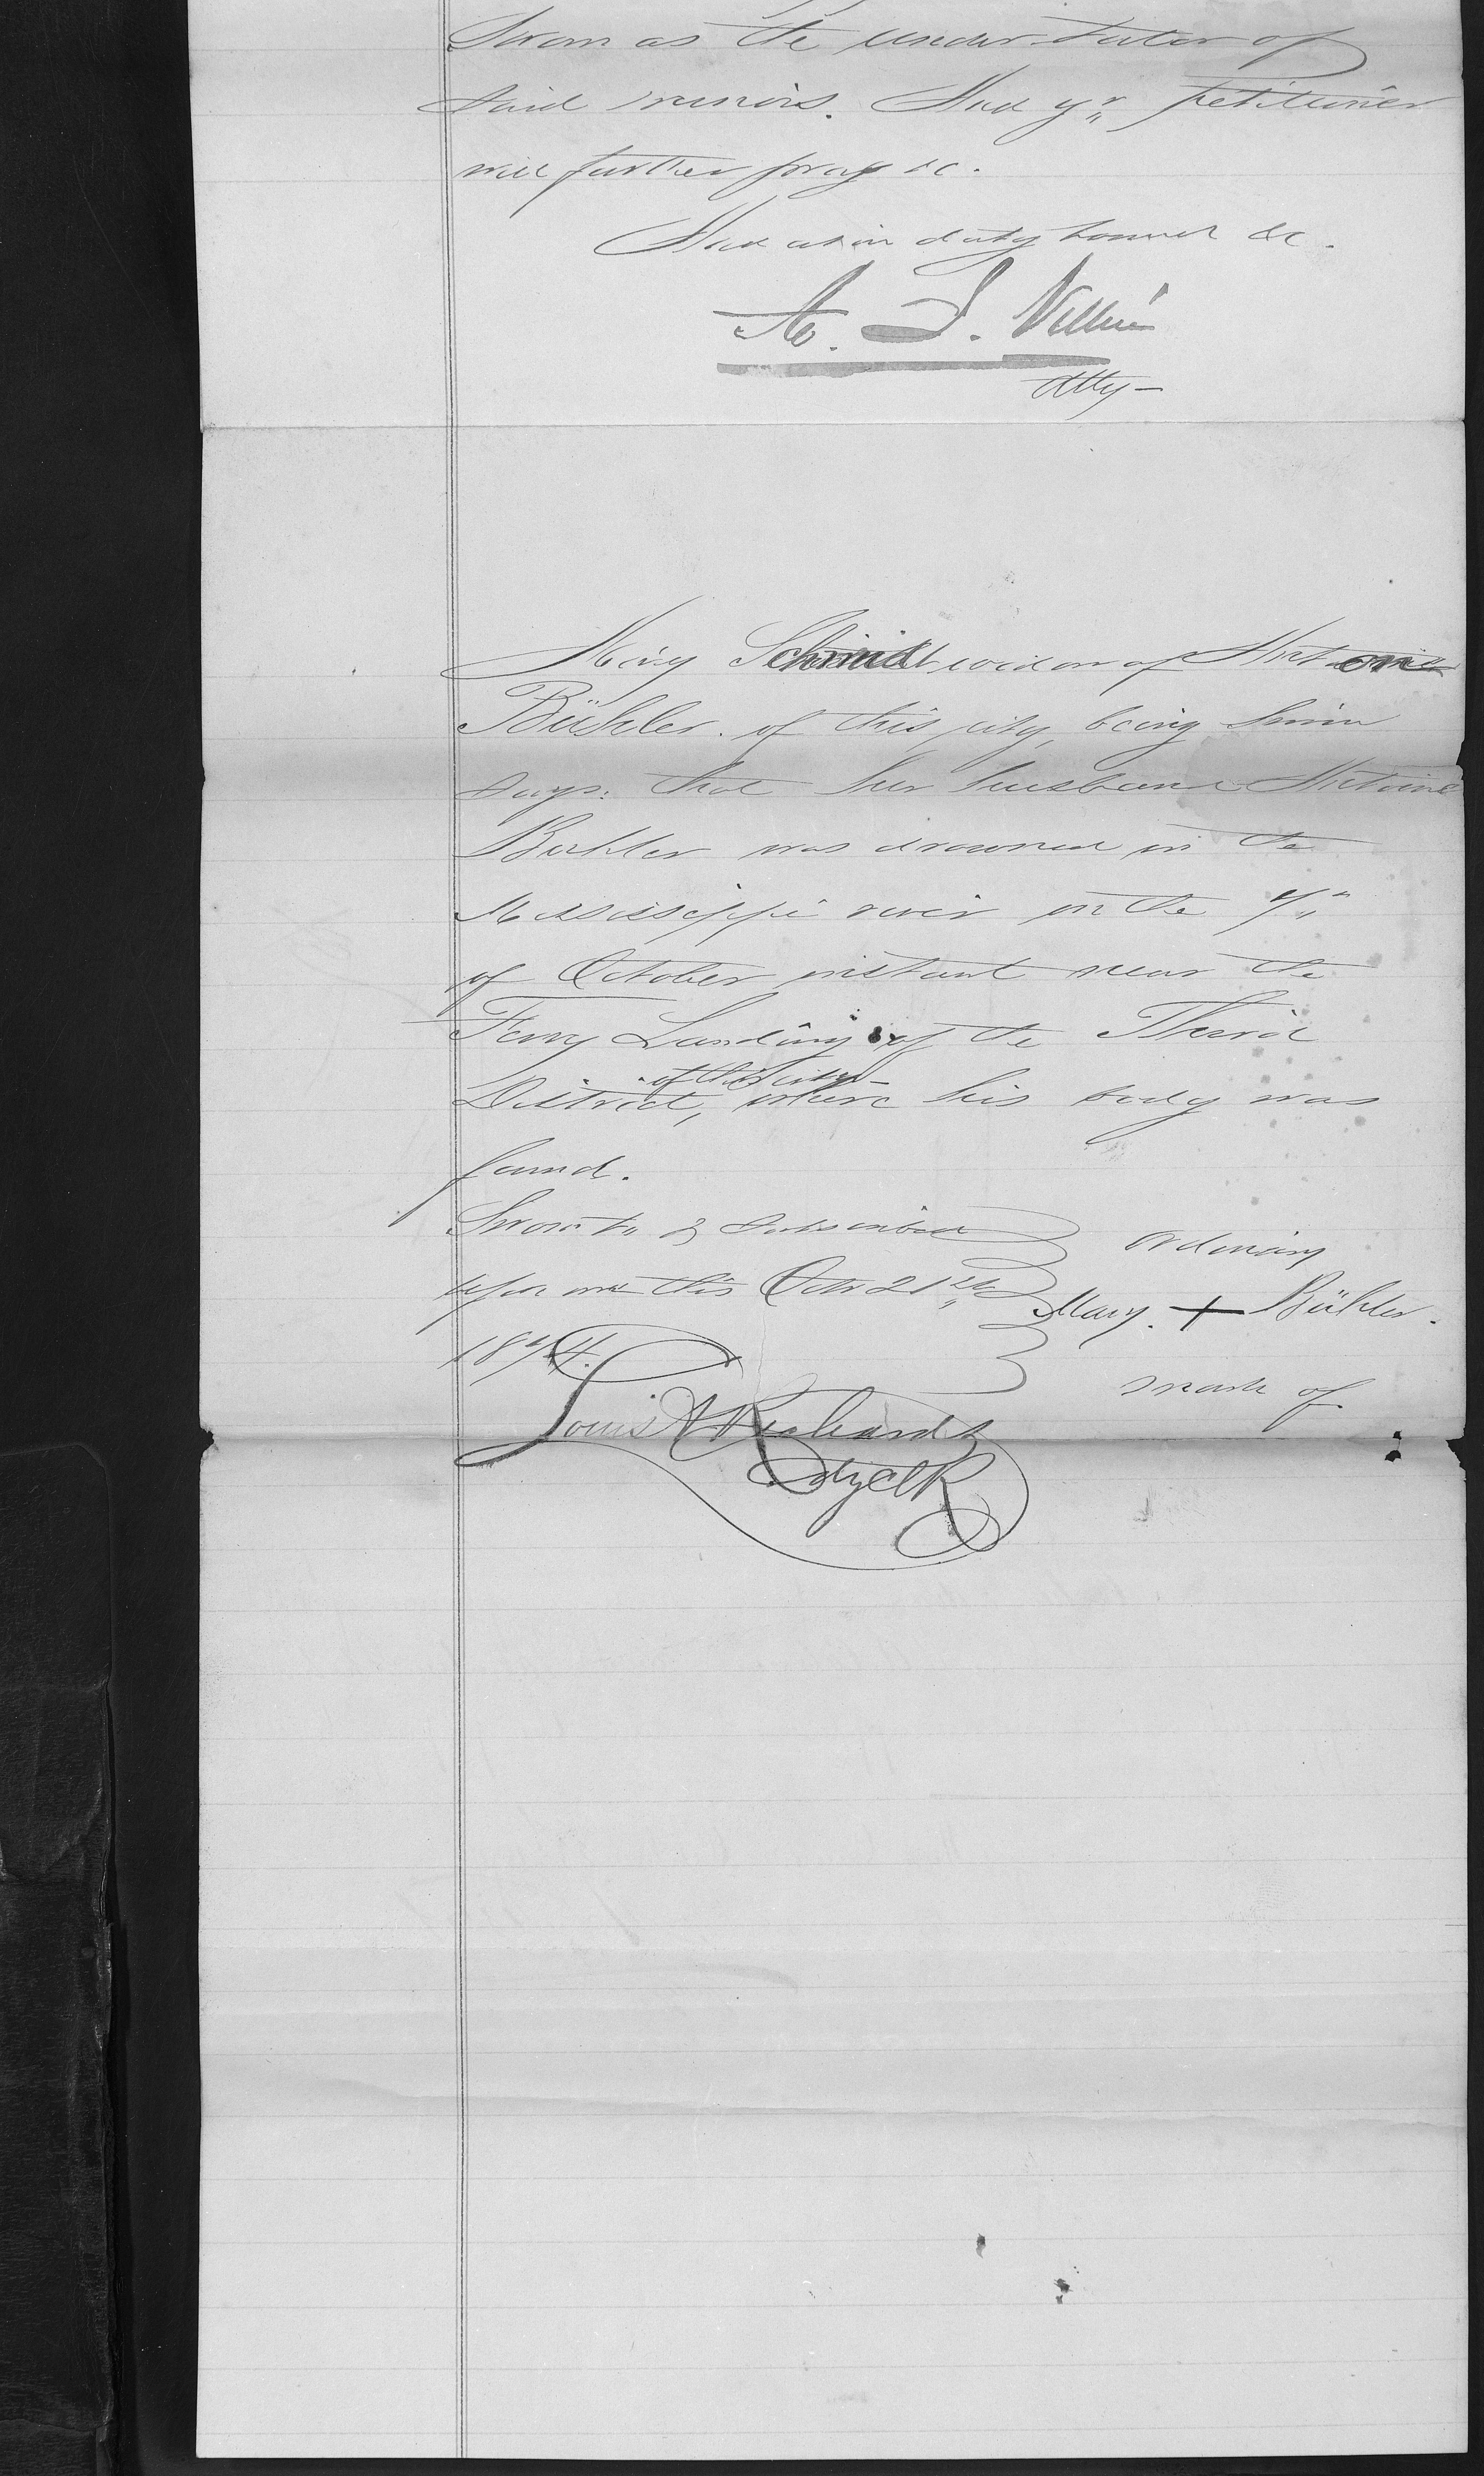 Sworn as the under tutor of
said minors. And yr petitioner
will further pray &c.
And as in duty bound &c.
A. J. Villeré
Atty
Mary Schmidt widow of Antoine
Bühler. of this city, being sworn
says: that her husband Antoine
Buhler was drowned in the
Mississippi river on the 7"
of October instant near the
Ferry Landing of the Third
of this city
District, where his body was
found.
Sworn to & subscribed
before me this Octr 21st
1874.
ordinary
Mary + Bühler.
mark of
Louis Richards
Dy Clk